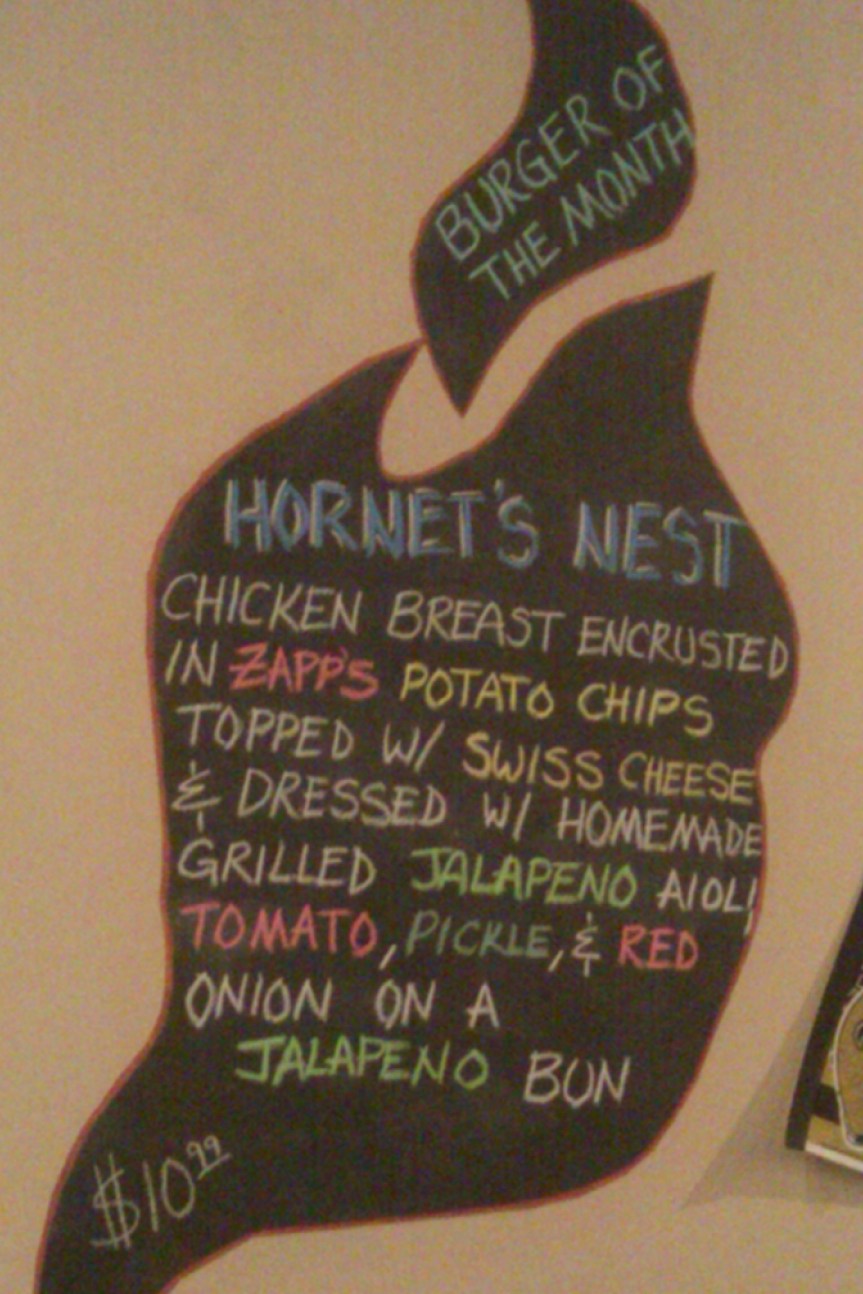 BURGER OF
THE MONTH
HORNET'S NEST
CHICKEN BREAST ENCRUSTED
IN ZAPP'S POTATO CHIPS
TOPPED W/ SWISS CHEESE
& DRESSED W/ HOMEMADE
GRILLED JALAPENO AIOLI,
TOMATO, PICKLE, & RED
ONION ON A
JALAPENO BUN
$10.99